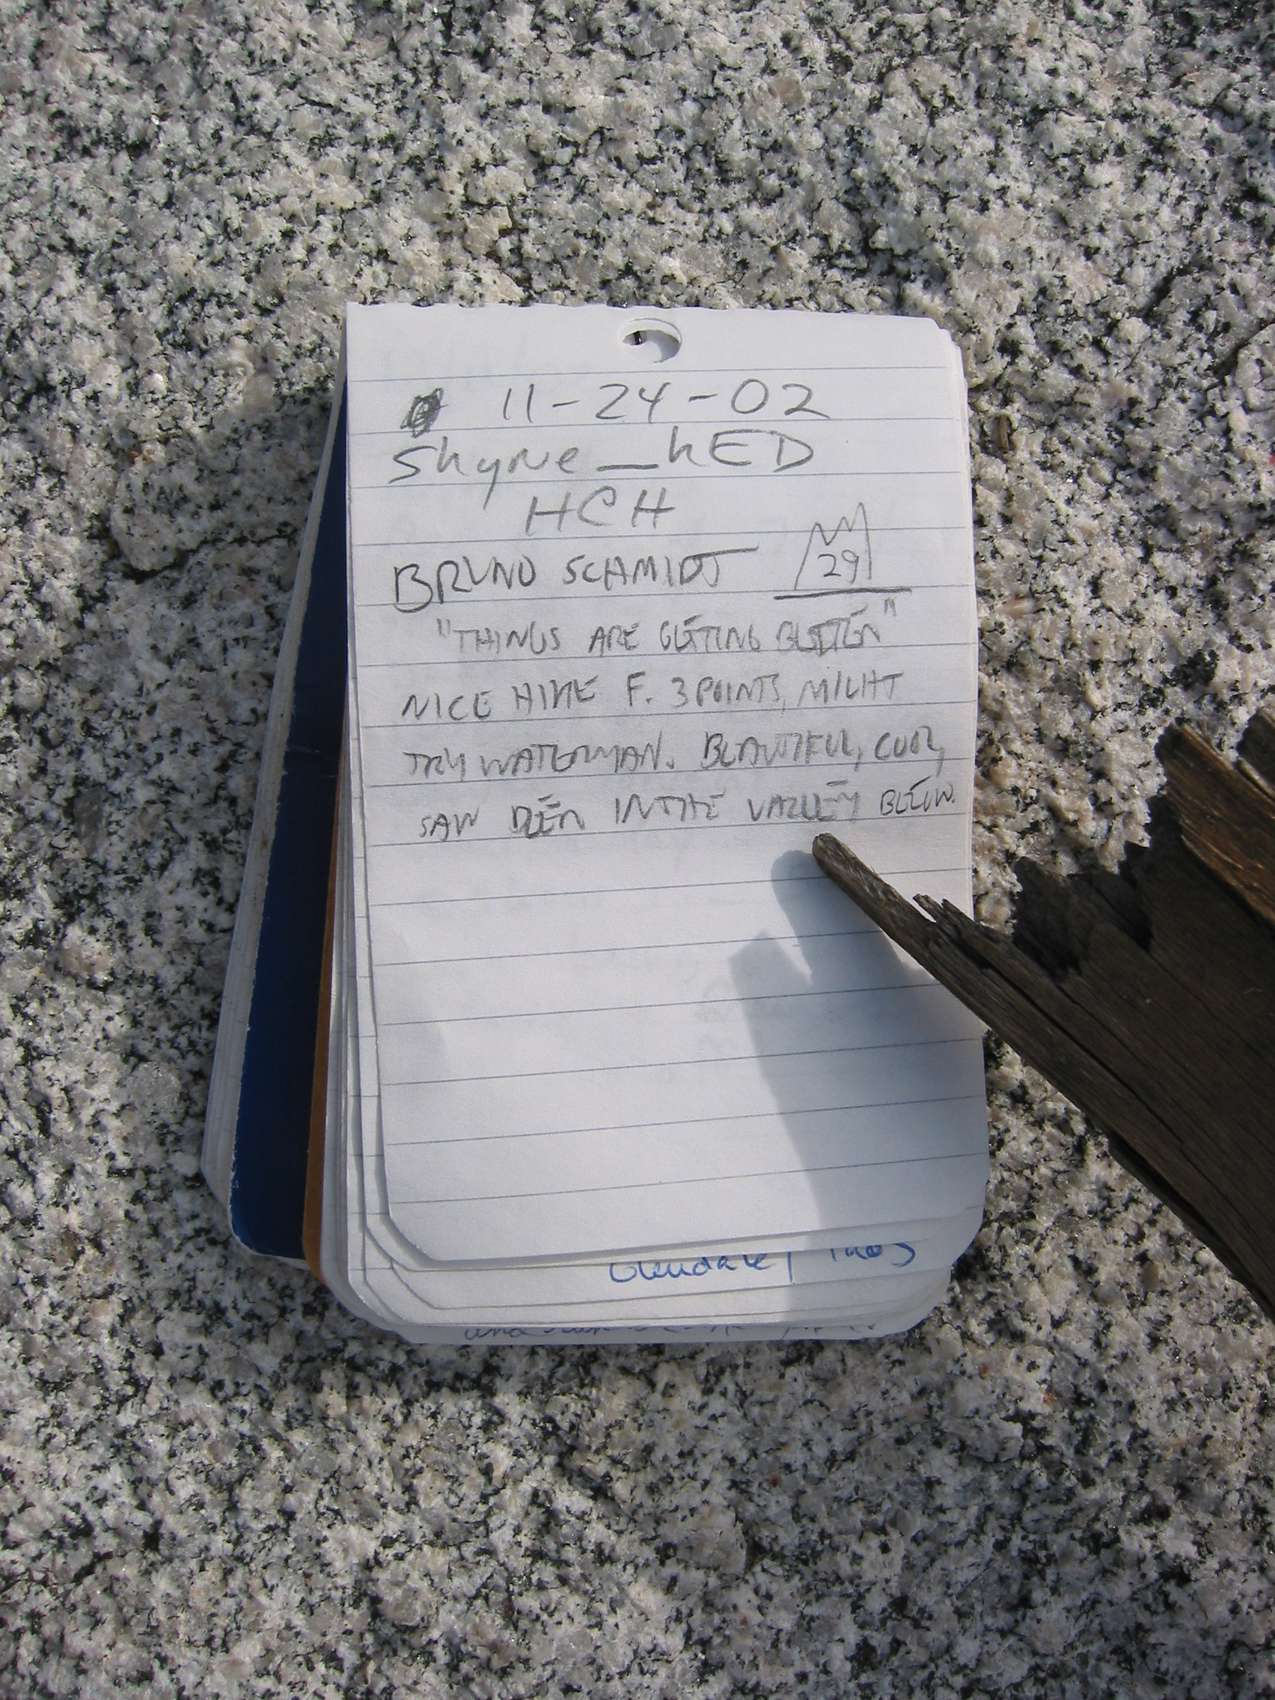 11-24-02
Shyne_hED
HCH
BRUNO SCHMIDT 29
"THINGS ARE GETTING BETTER"
NICE HIKE F. 3 POINTS, MIGHT
TRY WATERMAN. BEAUTIFUL, COOL,
SAW DEER IN THE VALLEY BELOW.
Glendale,
and